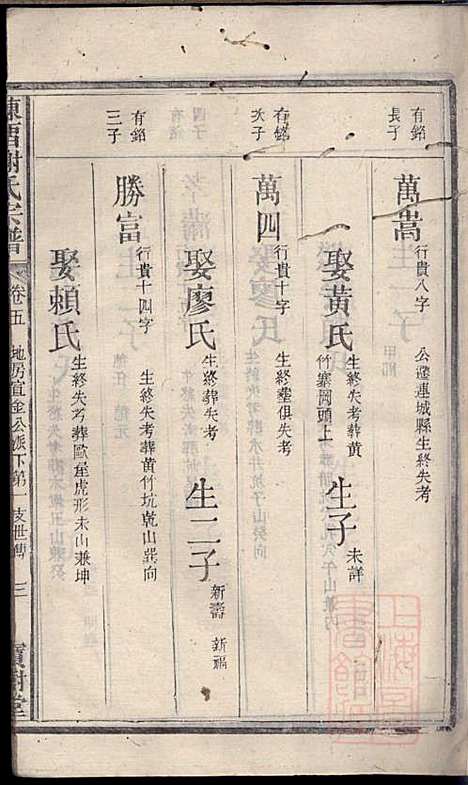 有銘
長子
萬嵩
行貴八字
公遷連城縣生終失考
娶黃氏
生終失考葬黃
竹寨岡頭上
生子
未詳
有銘
次子
萬四
行貴十字
生終塟俱失考
娶廖氏
生終葬失考
生二子
新壽 新福
有銘
三子
勝富
行貴十四字
生終失考葬黃竹坑乾山巽向
娶賴氏
生終失考葬歐屋虎形未山兼坤
謝氏宗譜
卷五
地房宣金公派下第一支世傳
三
寶樹堂